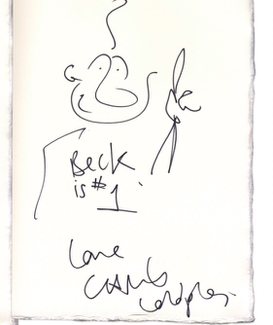 Beck
is #
1
Love
Chris
Coldplay